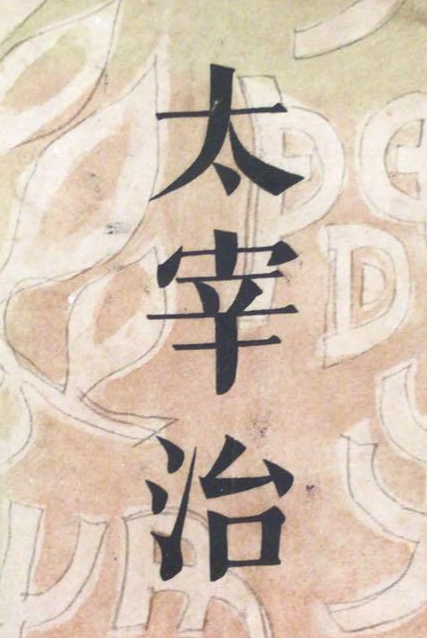 太宰治